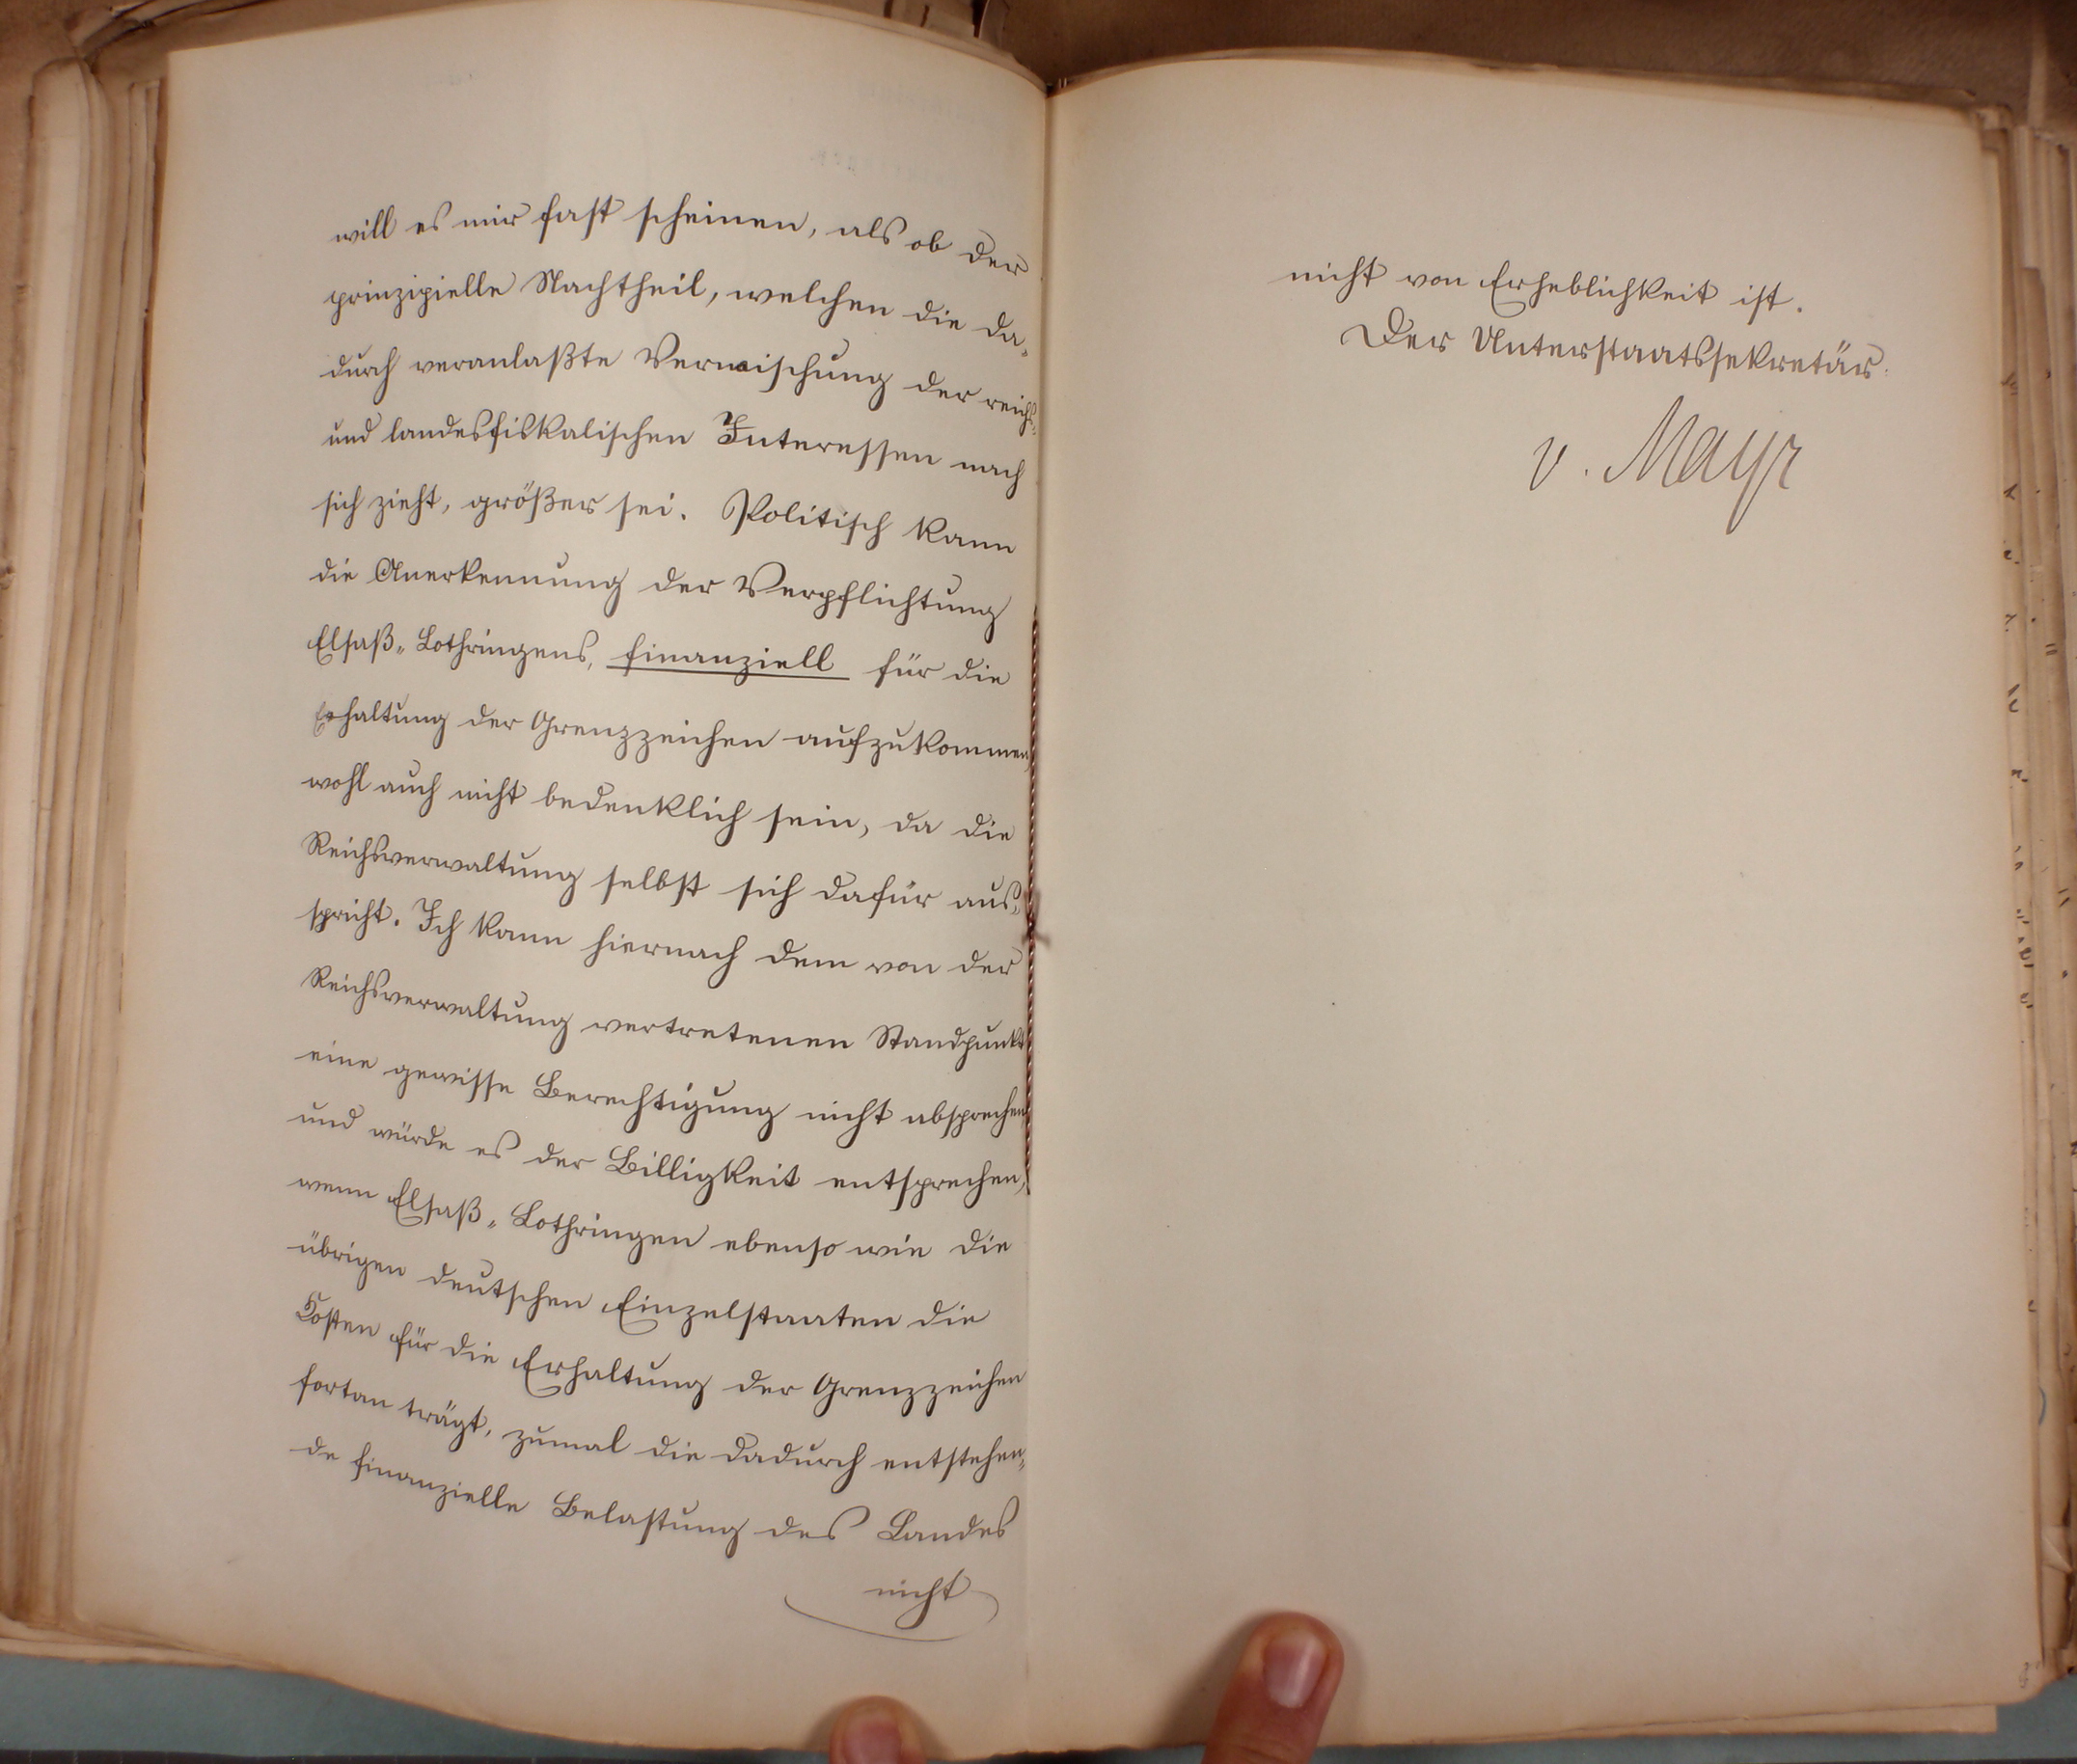 will es mir fast scheinen, als ob der
prinzipielle Nachtheil, welchen die da-
durch veranlaßte Vermischung der reichs-
und landesfiskalischen Interessen nach
sich zieht, größer sei. Politisch kann
die Anerkennung der Verpflichtung
Elsaß-Lothringens, finanziell für die
Erhaltung der Grenzzeichen aufzukommen,
wohl auch nicht bedenklich sein, da die
Reichsverwaltung selbst sich dafür aus-
spricht. Ich kann hiernach dem von der
Reichsverwaltung vertretenen Standpunkt
eine gewisse Berechtigung nicht absprechen
und würde es der Billigkeit entsprechen,
wenn Elsaß-Lothringen ebenso wie die
übrigen deutschen Einzelstaaten die
Kosten für die Erhaltung der Grenzzeichen
fortan trägt, zumal die dadurch entstehen-
de finanzielle Belastung des Landes
nicht
nicht von Erheblichkeit ist.
Der Unterstaatssekretär.
v. Mayr